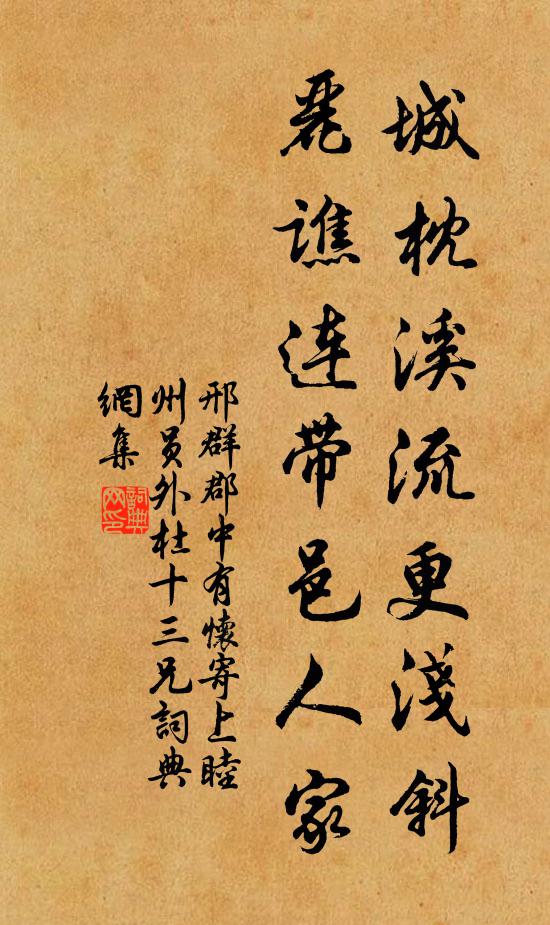 城枕溪流更淺斜
麗譙連帶邑人家
邢群郡中有懷寄上睦
州員外杜十三兄詞典
網集
詞典
网印